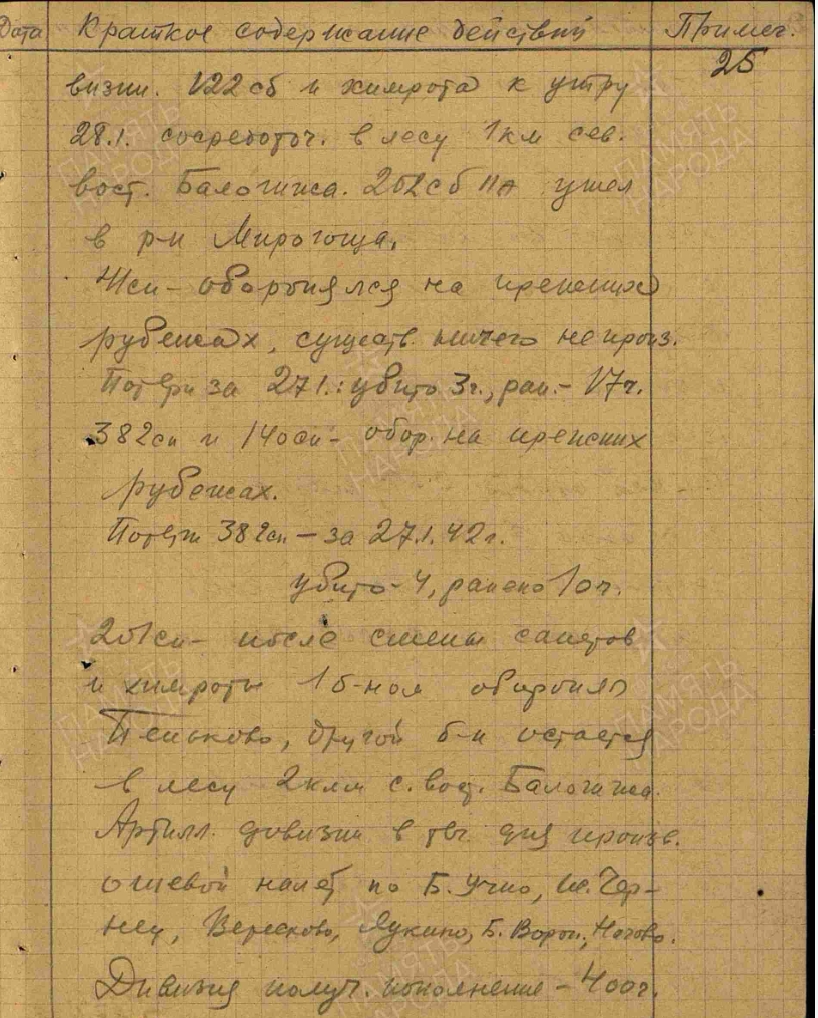 Дата Краткое содержание действий Примеч.
25
визии. 122 сб и химрота к утру
28.1. сосредоточ. в лесу 1 км сев.
вост. Балагижа. 202 сб ПА ушел
в р-н Мирогоща.
сп - оборонялся на прежних
рубежах, существ. ничего не произ.
Потери за 27.1.: убито 3ч., ран. - 17ч.
382сп и 140сп - обор. на прежних
рубежах.
Потери 382сп - за 27.1.42г.
убито - 4, ранено 10ч.
201сп - после смены
и химроты 1 б-ном обороняет
Пеньково, другой б-н остается
в лесу 2 клм с. вост. Балагижа.
Артилл. дивизии в теч. дня произв.
огневой налет по Б. Учно, Чер-
нец, Вересково, Лукино, Б. Ворон., Ногово.
Дивизия получ. пополнение - 400ч.